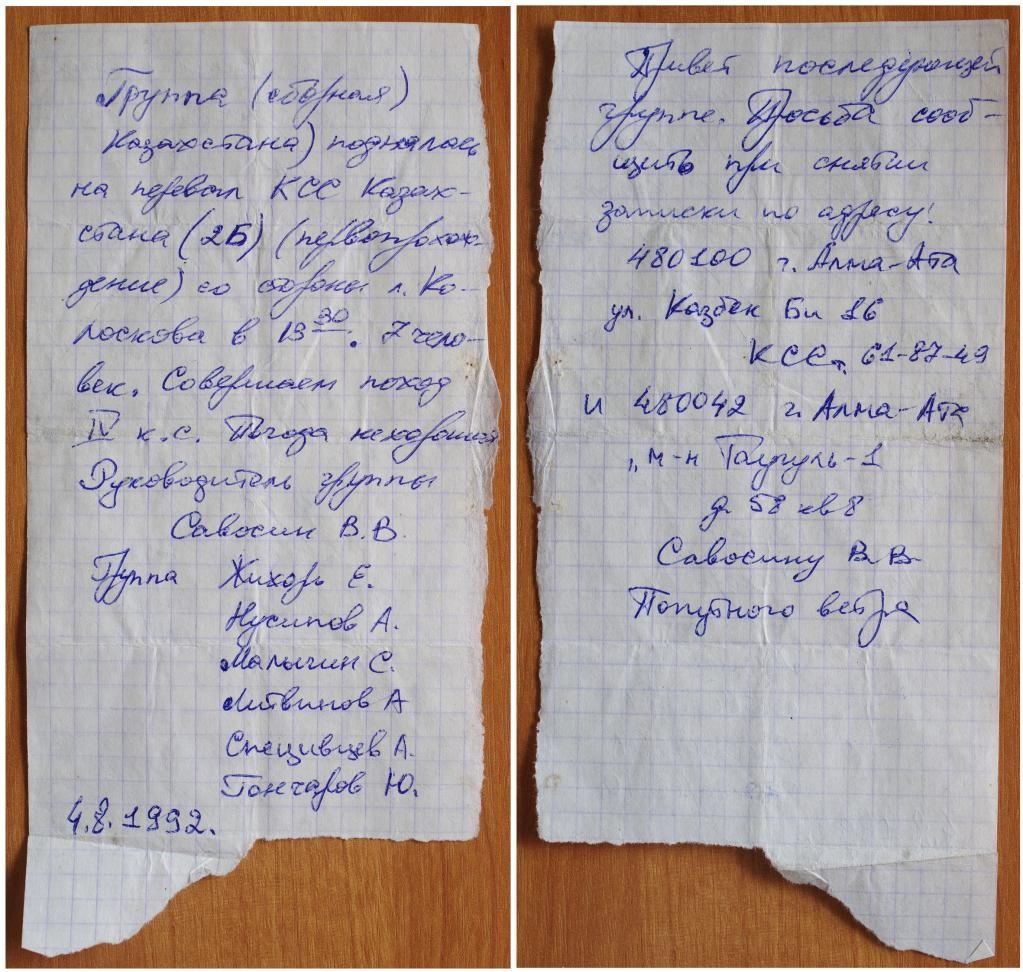 Группа (сборная)
Казахстана) поднялась
на перевал КСС Казах-
стана (2Б) (первопрохож-
дение) со стороны л. Ко-
лоскова в 13 30. 7 чело-
век. Совершаем поход
IV к.с. Погода нехорошая
Руководитель группы
Савосин В.В.
Группа Жихорь Е.
Нусипов А.
Малыгин С.
Литвинов А
Специвцев А.
Гончаров Ю.
4.8.1992.
Привет последующей
группе. Просьба сооб-
щить при снятии
записки по адресу!
480100 г. Алма-Ата
ул. Казбек Би 16
КССт. 61-87-49
и 480042 г. Алма-Ата
„ м-н Таугуль-1
д. 58 кв 8
Савосину В.В.
Попутного ветра